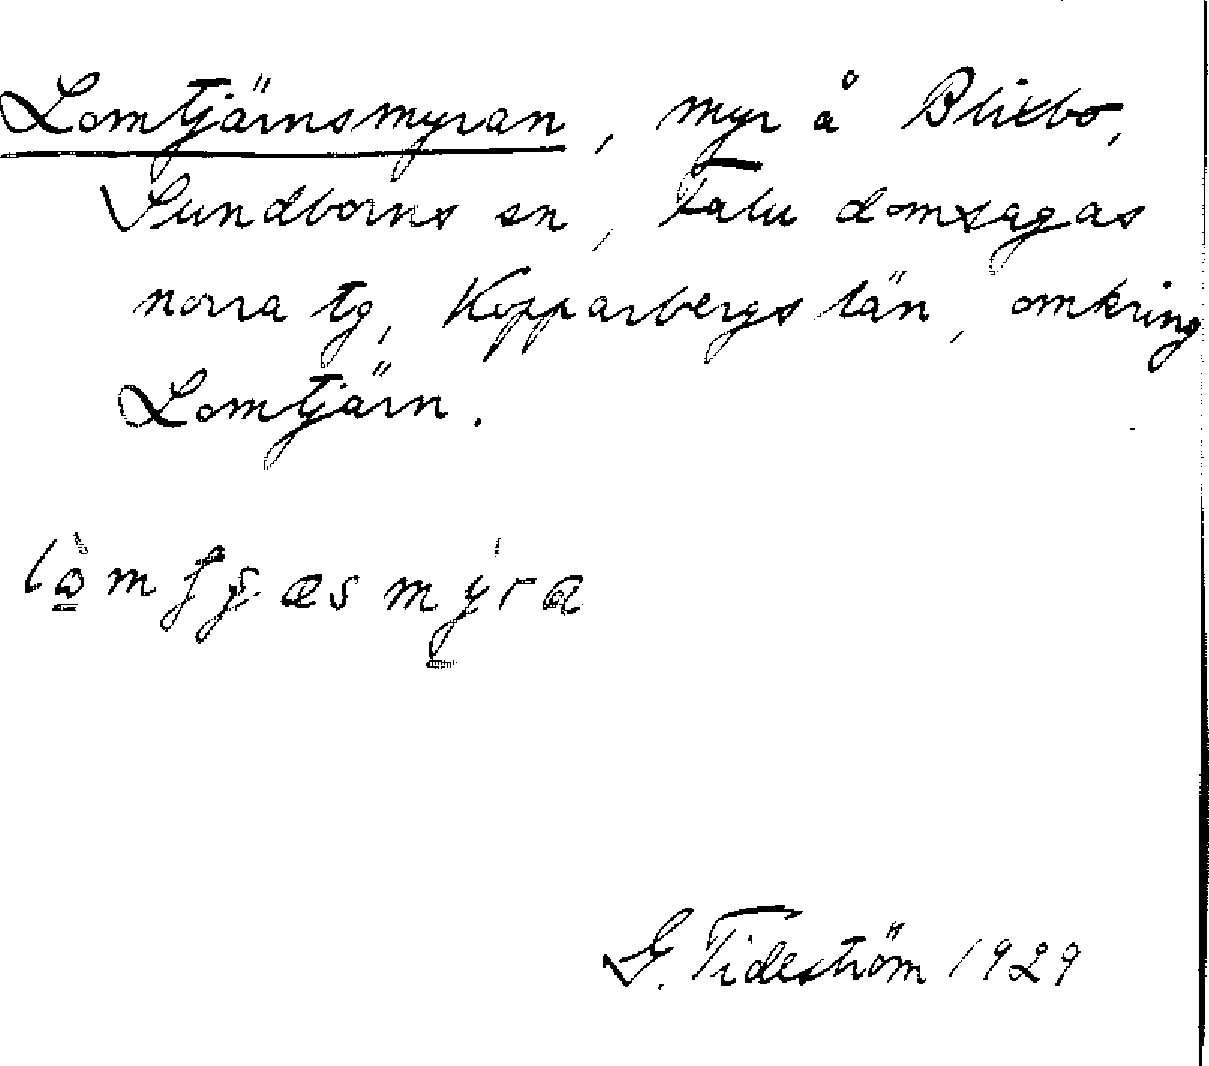 Lomtjärnsmyran, myr å Blixbo,
Sundborns sn, Falu domsagas
norra tg, Kopparbergs län, omkring
Lomtjärn.
G. Tideström 1929